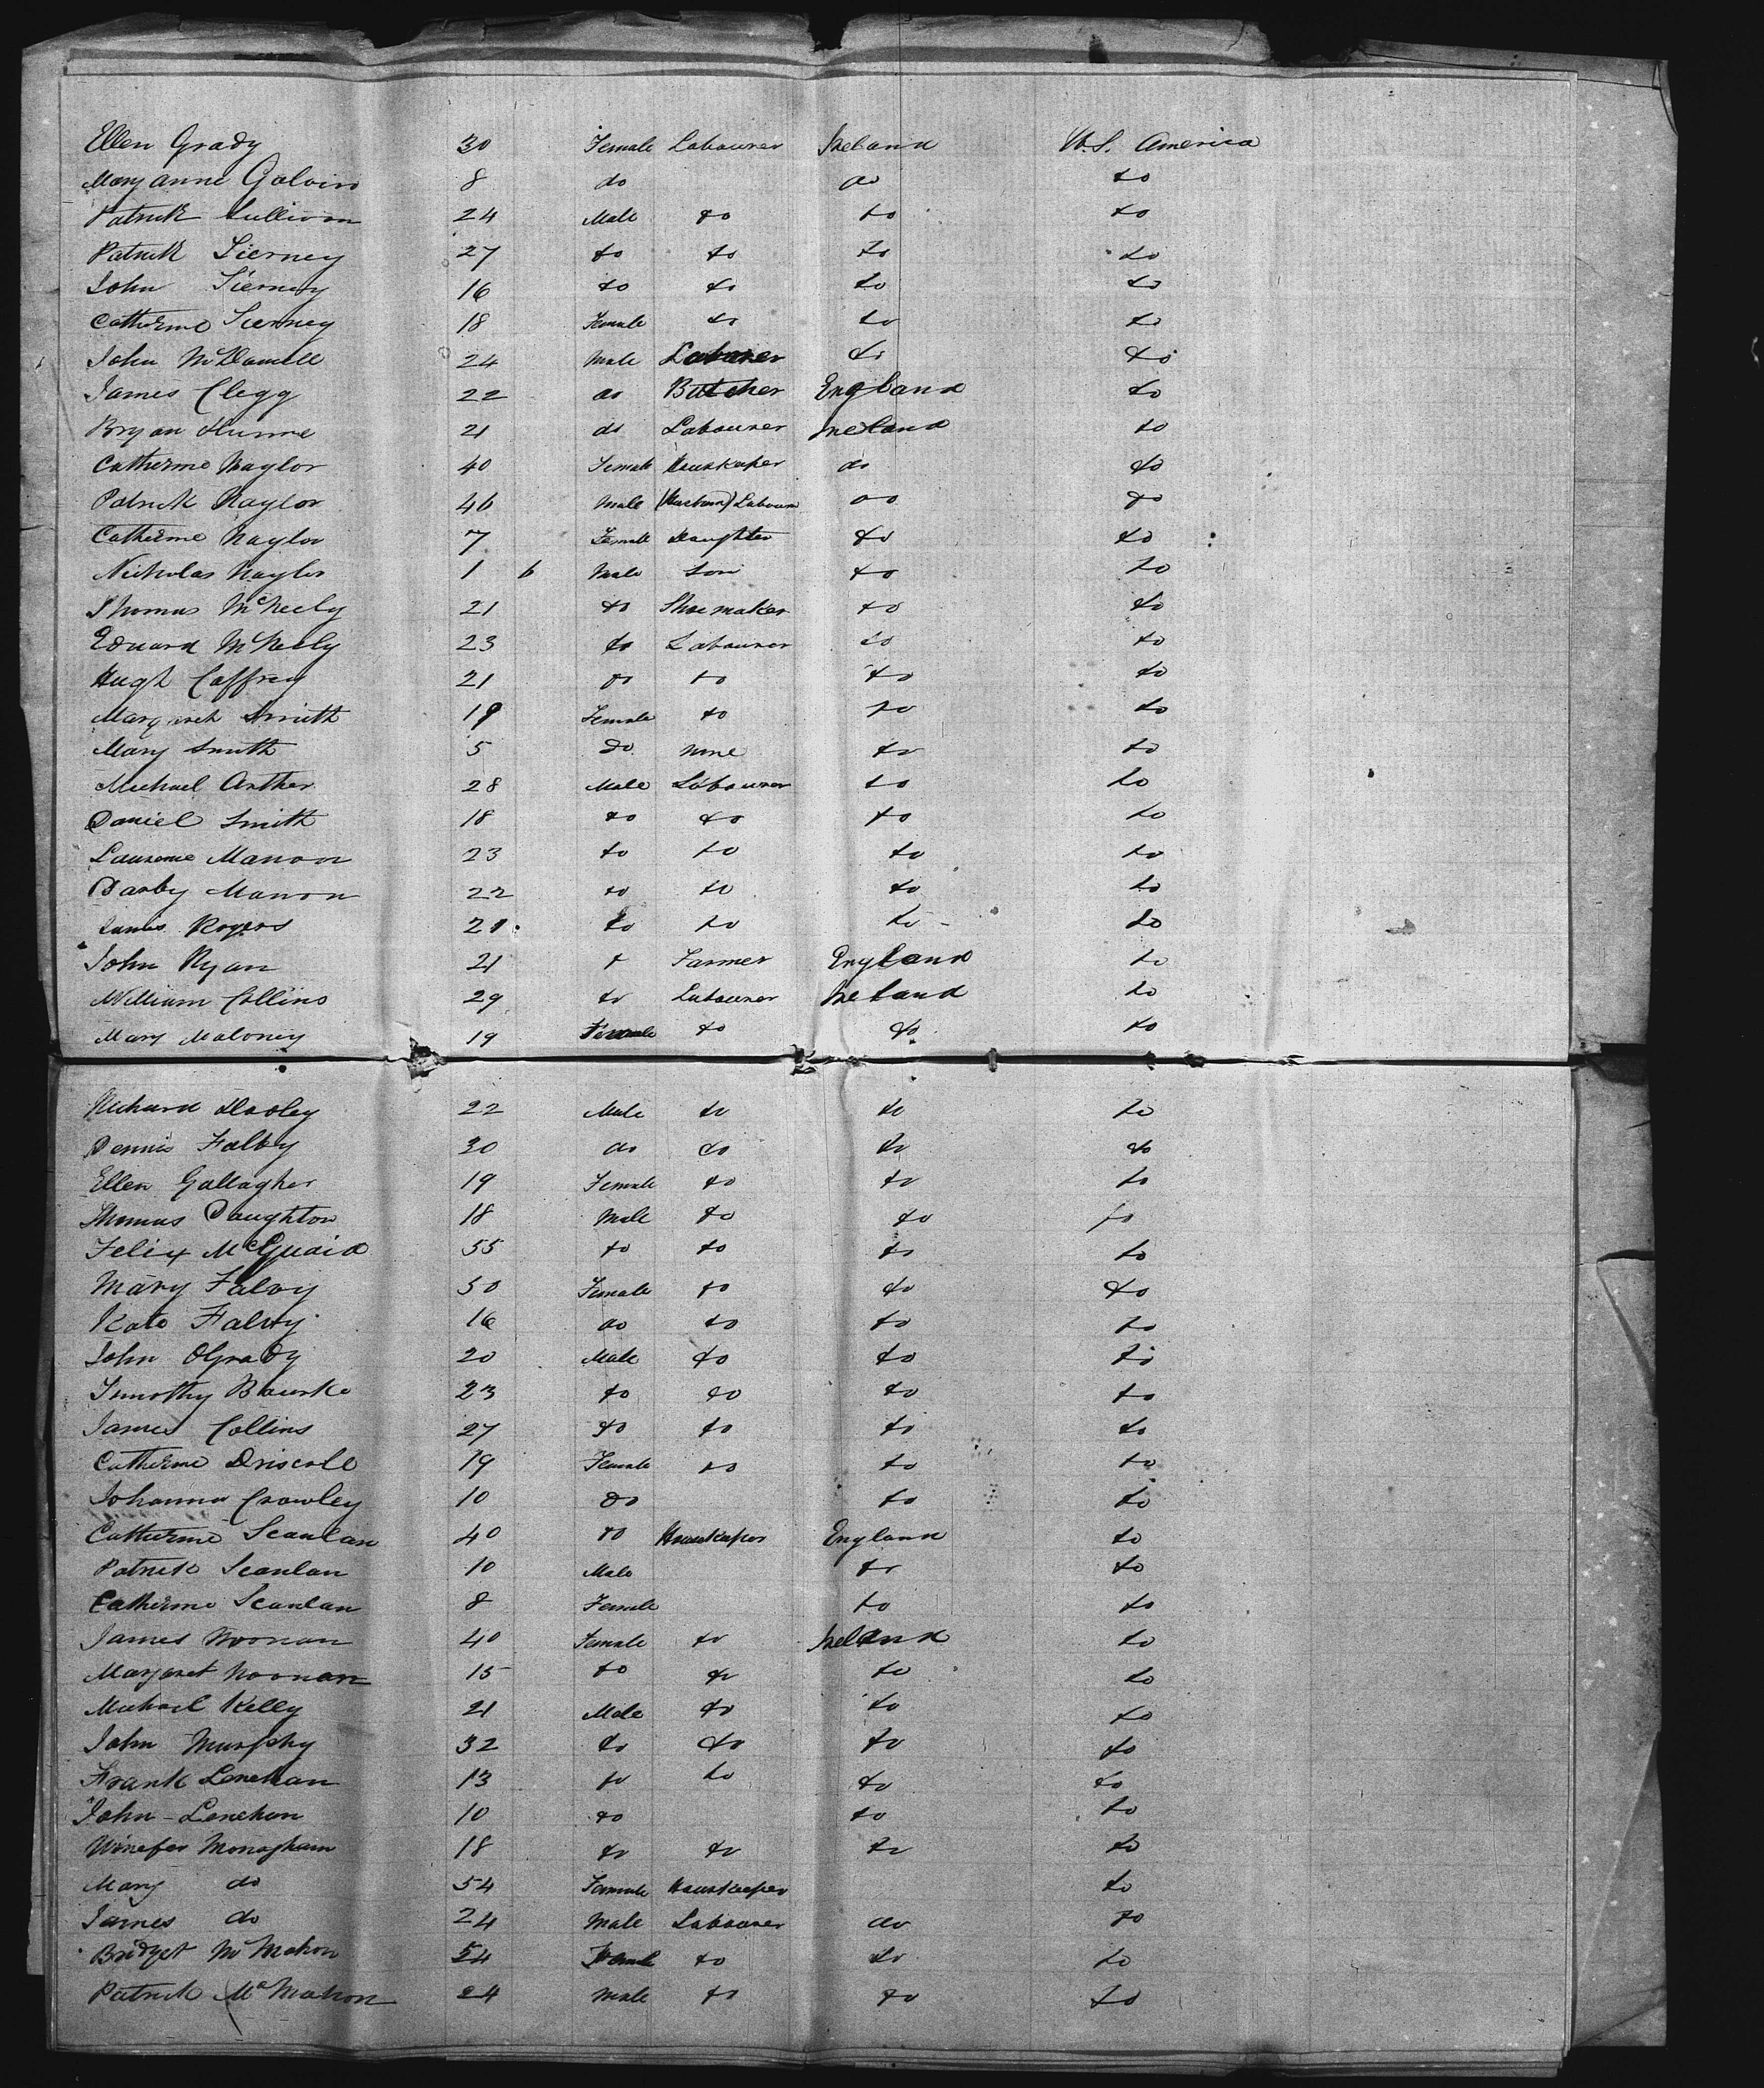 Ellen Grady 30 Female Labourer Ireland U.S. America
Mary Anne Galvin 8 do do do
Patrick Sullivan 24 Male do do do
Patrick Tierney 27 do do do do
John Tierney 16 do do do do
Catherine Tierney 18 Female do do do
John McDonnell 24 Male Labourer do do
James Clegg 22 do Butcher England do
Bryan Dunne 21 do Labourer Ireland do
Catherine Naylor 40 Female Housekeeper do do
Patrick Naylor 46 Male (Husband) Labourer do do
Catherine Naylor 7 Female Daughter do do
Nicholas Naylor 1 6 Male Son do do
Thomas McNeely 21 do Shoemaker do do
Edward McNeely 23 do Labourer do do
Hugh Caffrey 21 do do do do
Margaret Smith 19 Female do do do
Mary Smith 5 do none do do
Michael Arther 28 Male Labourer do do
Daniel Smith 18 do do do do
Laurence Manon 23 do do do do
Darby Manon 22 do do do do
James Rogers 21 do do do do
John Ryan 21 Farmer England do
William Collins 29 do Labourer Ireland do
Mary Maloney 19 Female do do do
Richard Dooley 22 Male do do do
Dennis Falvy 30 do do do do
Ellen Gallagher 19 Female do do do
Thomas Daughton 18 Male do do do
Felix McQuaid 55 do do do do
Mary Falvy 50 Female do do do
Kate Falvy 16 do do do do
John OGrady 20 Male do do do
Timothy Bourke 23 do do do do
James Collins 27 do do do do
Catherine Driscoll 19 Female do do do
Johanna Crowley 10 do do do
Catherine Scanlan 40 do Housekeeper England do
Patrick Scanlan 10 Male do do
Catherine Scanlan 8 Female do do
James Noonan 40 Female do Ireland do
Margaret Noonan 15 do do do do
Michael Kelly 21 Male do do do
John Murphy 32 do do do do
Frank Lenehan 13 do do do do
John Lenehan 10 do do do
Winefer Monagham 18 do do do do
Mary do 54 Female Housekeeper do
James do 24 Male Labourer do do
Bridget McMahon 54 Female do do do
Patrick McMahon 24 Male do do do